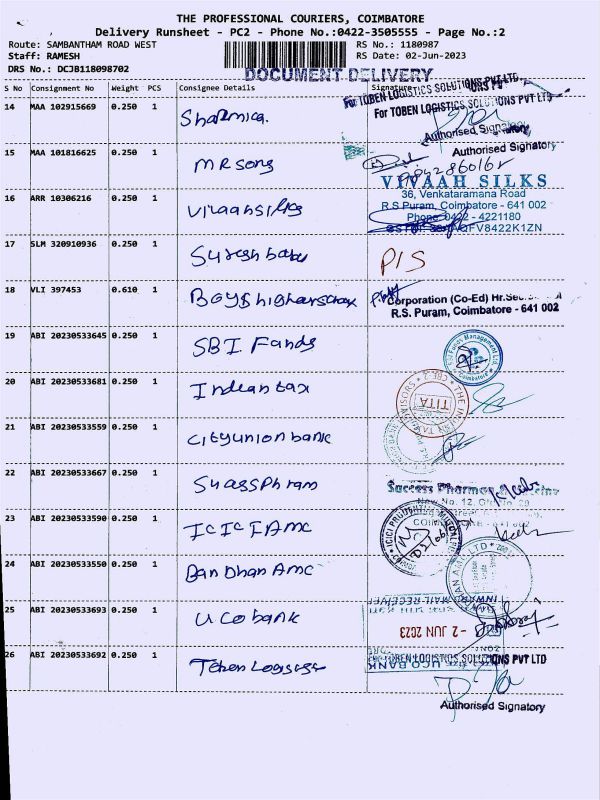 THE PROFESSIONAL COURIERS, COIMBATORE
Delivery Runsheet - PC2 - Phone No.:0422-3505555 - Page No.:2
Route: SAMBANTHAM ROAD WEST RS No.: 1180987
Staff: RAMESH RS Date: 02-Jun-2023
DRS No.: DCJB118098702 DOCUMENT DELIVERY
S No Consignment No Weight PCS Consignee Details Signature
For TOBEN LOGISTICS SOLUTIONS PVT LTD
14 MAA 102915669 0.250 1 Sharmica. For TOBEN LOGISTICS SOLUTIONS PVT LTD
Authorised Signatory
15 MAA 101816625 0.250 1 MR song Authorised Signatory
VIVAAH SILKS
16 ARR 10306216 0.250 1 Vivaahsilks 36, Venkataramana Road
R.S Puram, Coimbatore - 641 002
Phone 0422 - 4221180
17 SLM 320910936 0.250 1 Suresh babu P/S
18 VLI 397453 0.610 1 Boys higher Corporation (Co-Ed) Hr.Sec.
R.S. Puram, Coimbatore - 641 002
19 ABI 20230533645 0.250 1 SBI Funds
20 ABI 20230533681 0.250 1 Indian tax
TITA
21 ABI 20230533559 0.250 1 Cityunion bank
22 ABI 20230533667 0.250 1 Success Pharma
23 ABI 20230533590 0.250 1 ICICI AMC
24 ABI 20230533550 0.250 1 Bandhan AMC
INWARD MAIL RECEIVED
25 ABI 20230533693 0.250 1 UCO bank - 2 JUN 2023
26 ABI 20230533692 0.250 1 Toben Logistics TOBEN LOGISTICS SOLUTIONS PVT LTD
UCO BANK
Authorised Signatory